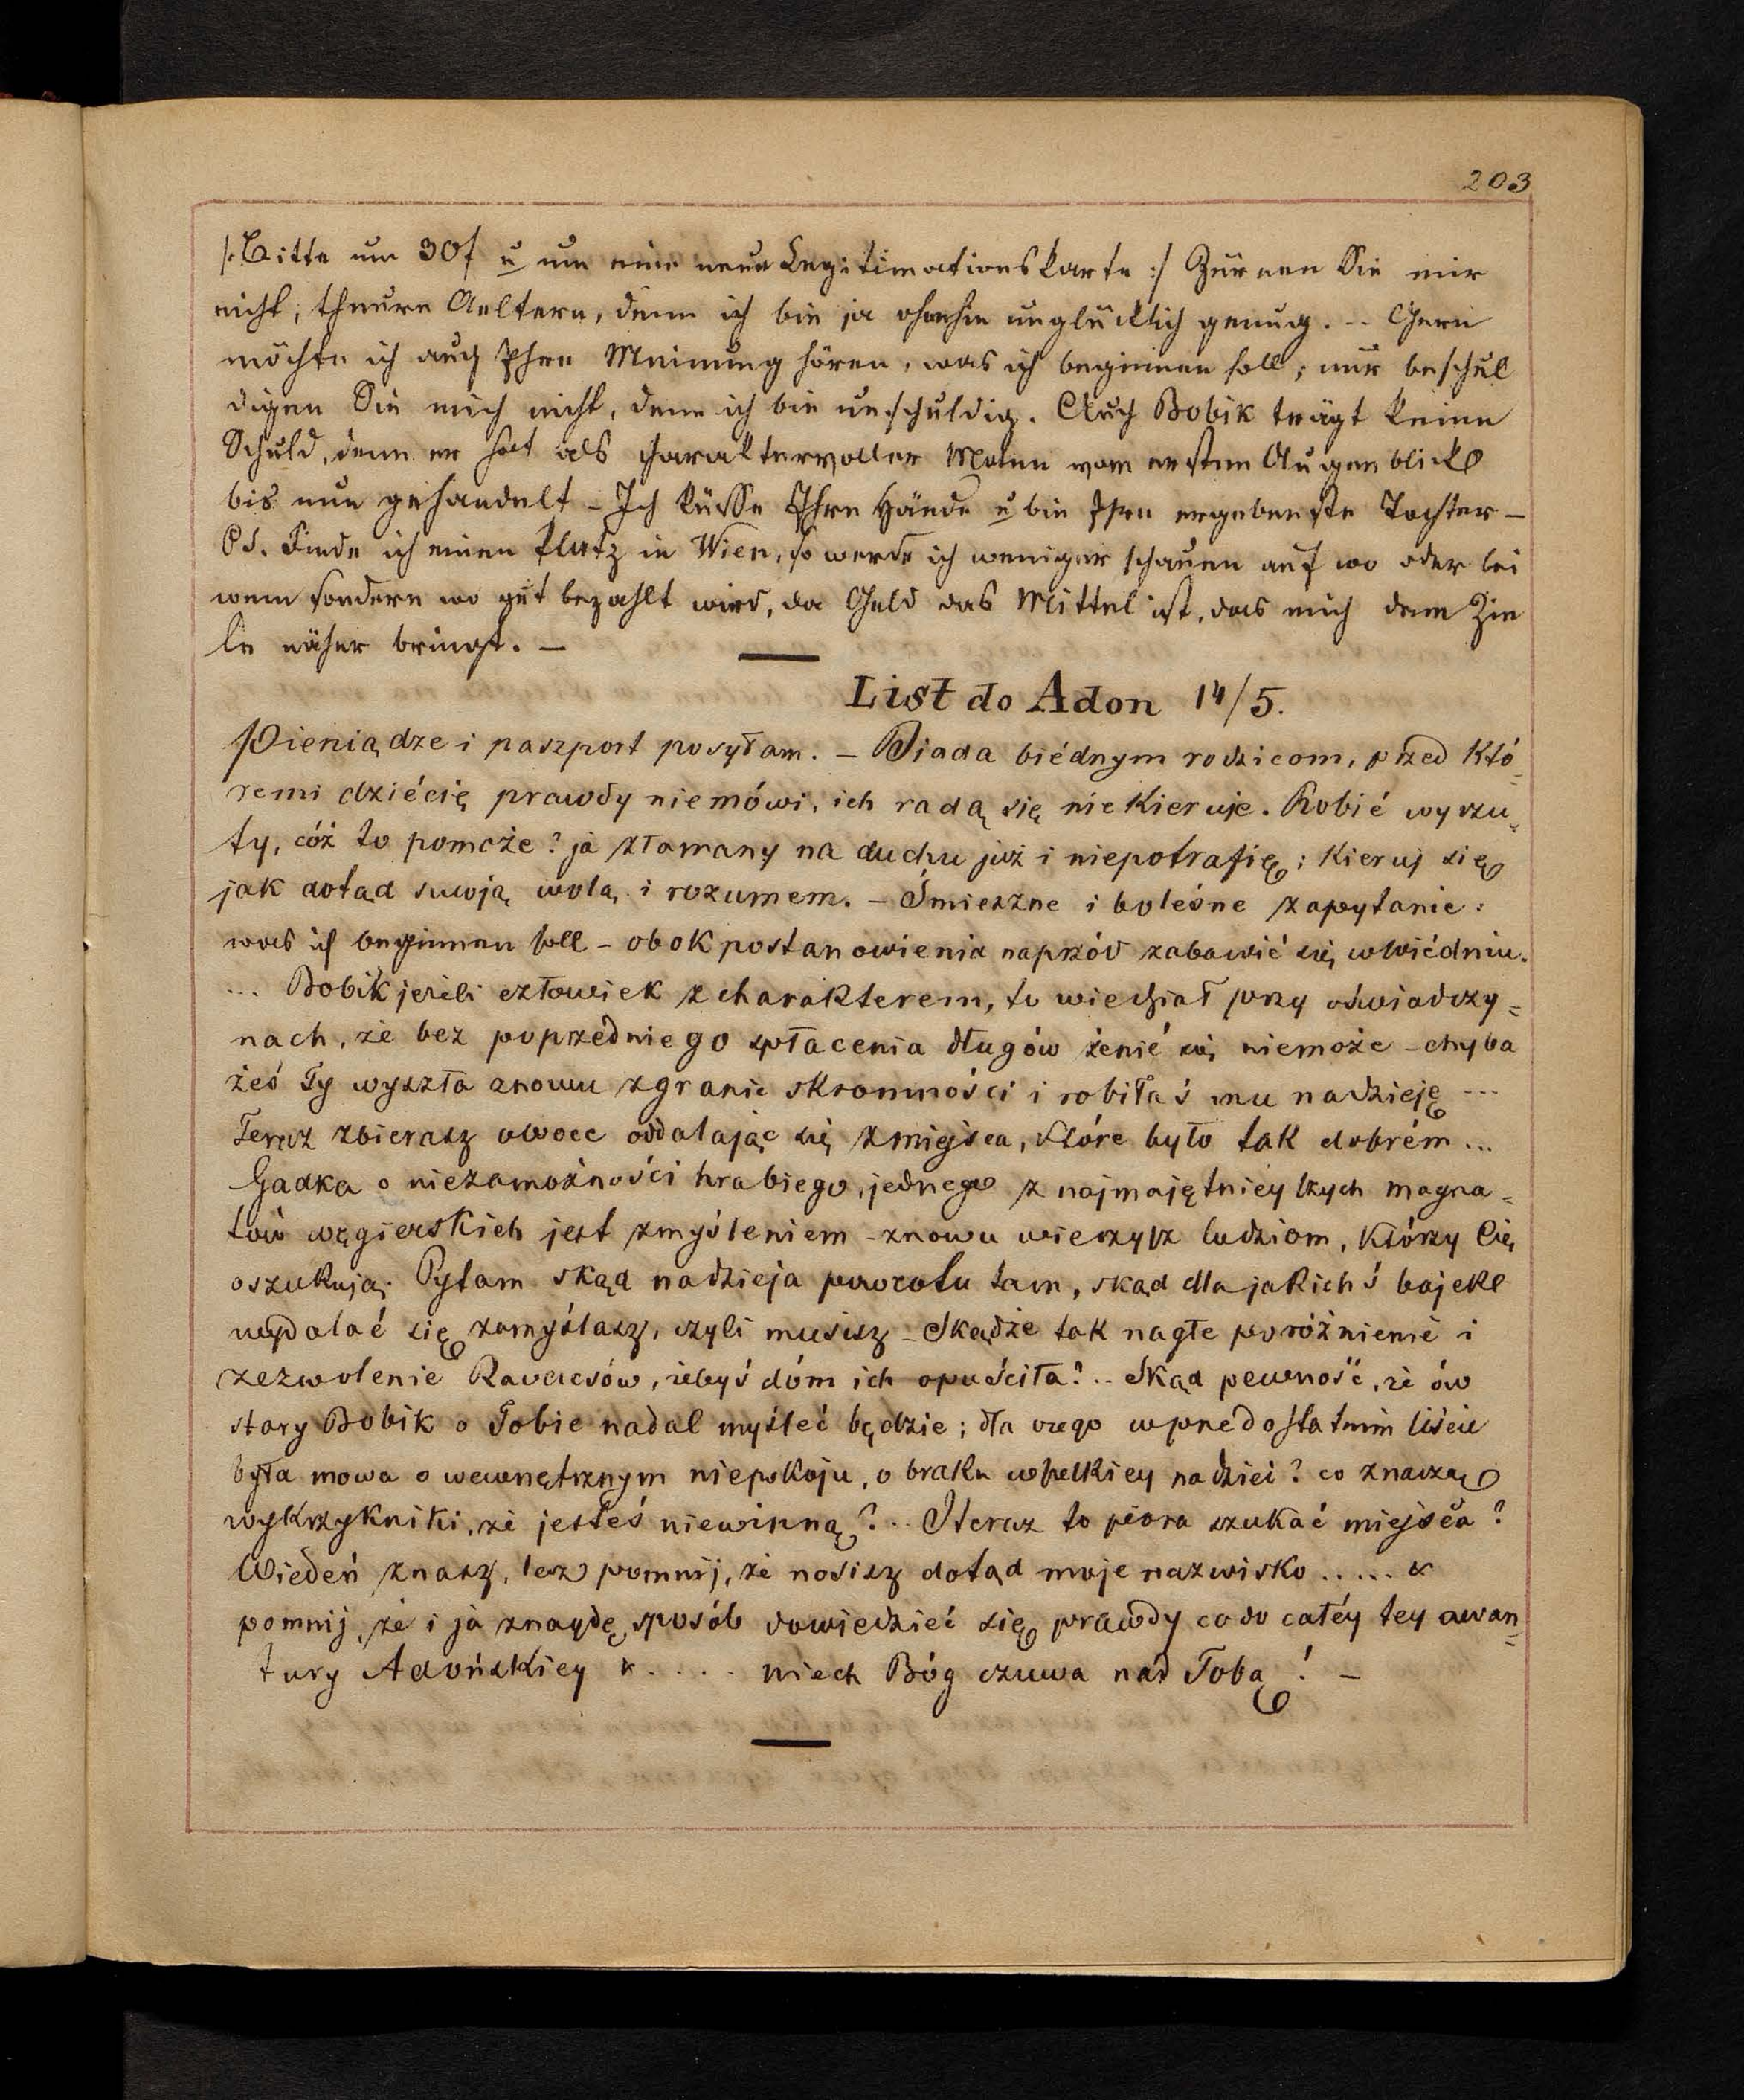 203
/: Bitte um 30f u um eine neue Legitimationskarte :/ Zürnen Sie mir
nicht, theure Aeltern, denn ich bin ja ohnehin unglücklich genug. -- Gern
möchte ich auch Ihre Meinung hören, was ich beginnen soll; nur beschul
digen Sie mich nicht, denn ich bin unschuldig. Auch Bobik trägt keine
Schuld, denn er hat als charaktervoller Mann vom ersten Augenblicke
bis nun gehandelt - Ich küsse Ihre Hände u bin Ihre ergebenste Tochter -
PS. Finde ich einen Platz in Wien, so werde ich weniger schauen auf wo oder bei
wem sondern wo gut bezahlt wird, da Geld das Mittel ist, das mich dem Zie
le näher bringt. -
List do Adon 14/5.
Pieniądze i paszport posyłam. - Biada biédnym rodzicom, przed któ=
remi dziécię prawdy niemówi, ich radą się niekieruje. Robić wyrzu=
ty, cóż to pomoże? ja złamany na duchu już i niepotrafię; Kieruj się
jak dotąd swoją wolą i rozumem. - Śmieszne i boleśne zapytanie:
was ich beginnen soll - obok postanowienia naprzód zabawić się w Wiédniu.
... Bobik jeżeli człowiek z charakterem, to wiedział przy oświadczy=
nach, że bez poprzedniego spłacenia długów żenić się niemoże - chyba
żeś Ty wyszła znowu z granic skromności i robiłaś mu nadzieję ---
Teraz zbierasz owoce oddalając się z miejsca, które było tak dobrém ...
Gadka o niezamożności hrabiego, jednego z najmajętnieyszych magna=
tów węgierskich jest zmyśleniem - znowu wierzysz ludziom, którzy Cię
oszukują. Pytam skąd nadzieja powrotu tam, skąd dla jakichś bajek
wydalać się zamyślasz, czyli musisz - Skądże tak nagłe poróżnienie i
zezwolenie Ravacsów, żebyś dóm ich opuściła? .. Skąd pewność, że ów
stary Bobik o Tobie nadal myśleć będzie; dla czego w przedostatnim liście
była mowa o wewnętrznym niepokoju, o braku wszelkiey nadziei? co znaczą
wykrzykniki, że jesteś niewinną? .. I teraz to pora szukać miejsca?
Wiedeń znasz, lecz pomnij, że nosisz dotąd moje nazwisko .....
pomnij, że i ja znaydę sposób dowiedzieć się prawdy co do całéy tey awan=
tury Adońskiey .... niech Bóg czuwa nad Tobą! -